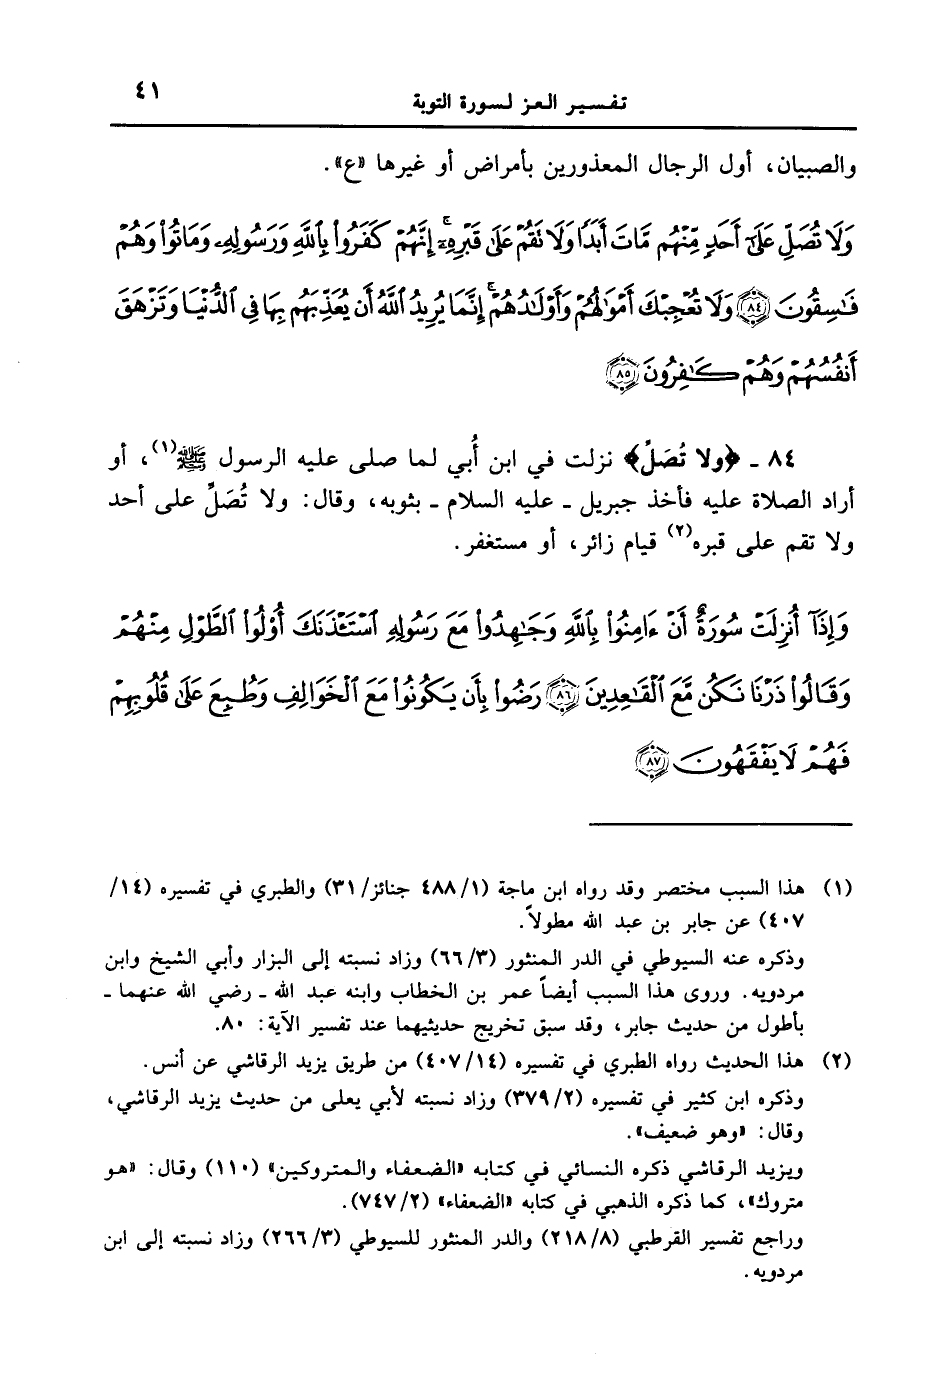 تفسير العز لسورة التوبة ٤١
والصبيان، أول الرجال المعذورين بأمراض أو غيرها «ع».
وَلَا تُصَلِّ عَلَىٰٓ أَحَدٍ مِّنْهُم مَّاتَ أَبَدًا وَلَا تَقُمْ عَلَىٰ قَبْرِهِۦٓ ۖ إِنَّهُمْ كَفَرُوا۟ بِٱللَّهِ وَرَسُولِهِۦ وَمَاتُوا۟ وَهُمْ
فَـٰسِقُونَ ﴿٨٤﴾ وَلَا تُعْجِبْكَ أَمْوَٰلُهُمْ وَأَوْلَـٰدُهُمْ ۚ إِنَّمَا يُرِيدُ ٱللَّهُ أَن يُعَذِّبَهُم بِهَا فِى ٱلدُّنْيَا وَتَزْهَقَ
أَنفُسُهُمْ وَهُمْ كَـٰفِرُونَ ﴿٨٥﴾
٨٤ ـ ﴿ولا تُصَلِّ﴾ نزلت في ابن أُبي لما صلى عليه الرسول ﷺ(١)، أو
أراد الصلاة عليه فأخذ جبريل ـ عليه السلام ـ بثوبه، وقال: ولا تُصَلِّ على أحد
ولا تقم على قبره(٢) قيام زائر، أو مستغفر.
وَإِذَآ أُنزِلَتْ سُورَةٌ أَنْ ءَامِنُوا۟ بِٱللَّهِ وَجَـٰهِدُوا۟ مَعَ رَسُولِهِ ٱسْتَـْٔذَنَكَ أُو۟لُوا۟ ٱلطَّوْلِ مِنْهُمْ
وَقَالُوا۟ ذَرْنَا نَكُن مَّعَ ٱلْقَـٰعِدِينَ ﴿٨٦﴾ رَضُوا۟ بِأَن يَكُونُوا۟ مَعَ ٱلْخَوَالِفِ وَطُبِعَ عَلَىٰ قُلُوبِهِمْ
فَهُمْ لَا يَفْقَهُونَ ﴿٨٧﴾
(١) هذا السبب مختصر وقد رواه ابن ماجة (٤٨٨/١ جنائز/٣١) والطبري في تفسيره (١٤/
٤٠٧) عن جابر بن عبد الله مطولاً.
وذكره عنه السيوطي في الدر المنثور (٦٦/٣) وزاد نسبته إلى البزار وأبي الشيخ وابن
مردويه. وروى هذا السبب أيضاً عمر بن الخطاب وابنه عبد الله ـ رضي الله عنهما ـ
بأطول من حديث جابر، وقد سبق تخريج حديثيهما عند تفسير الآية: ٨٠.
(٢) هذا الحديث رواه الطبري في تفسيره (٤٠٧/١٤) من طريق يزيد الرقاشي عن أنس.
وذكره ابن كثير في تفسيره (٣٧٩/٢) وزاد نسبته لأبي يعلى من حديث يزيد الرقاشي،
وقال: «وهو ضعيف».
ويزيد الرقاشي ذكره النسائي في كتابه «الضعفاء والمتروكين» (١١٠) وقال: «هو
متروك»، كما ذكره الذهبي في كتابه «الضعفاء» (٧٤٧/٢).
وراجع تفسير القرطبي (٢١٨/٨) والدر المنثور للسيوطي (٢٦٦/٣) وزاد نسبته إلى ابن
مردويه.